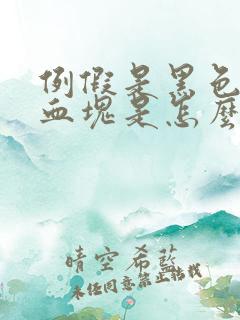 例假是黑色
血塊是怎麼
晴空希藍
未经同意禁止转载